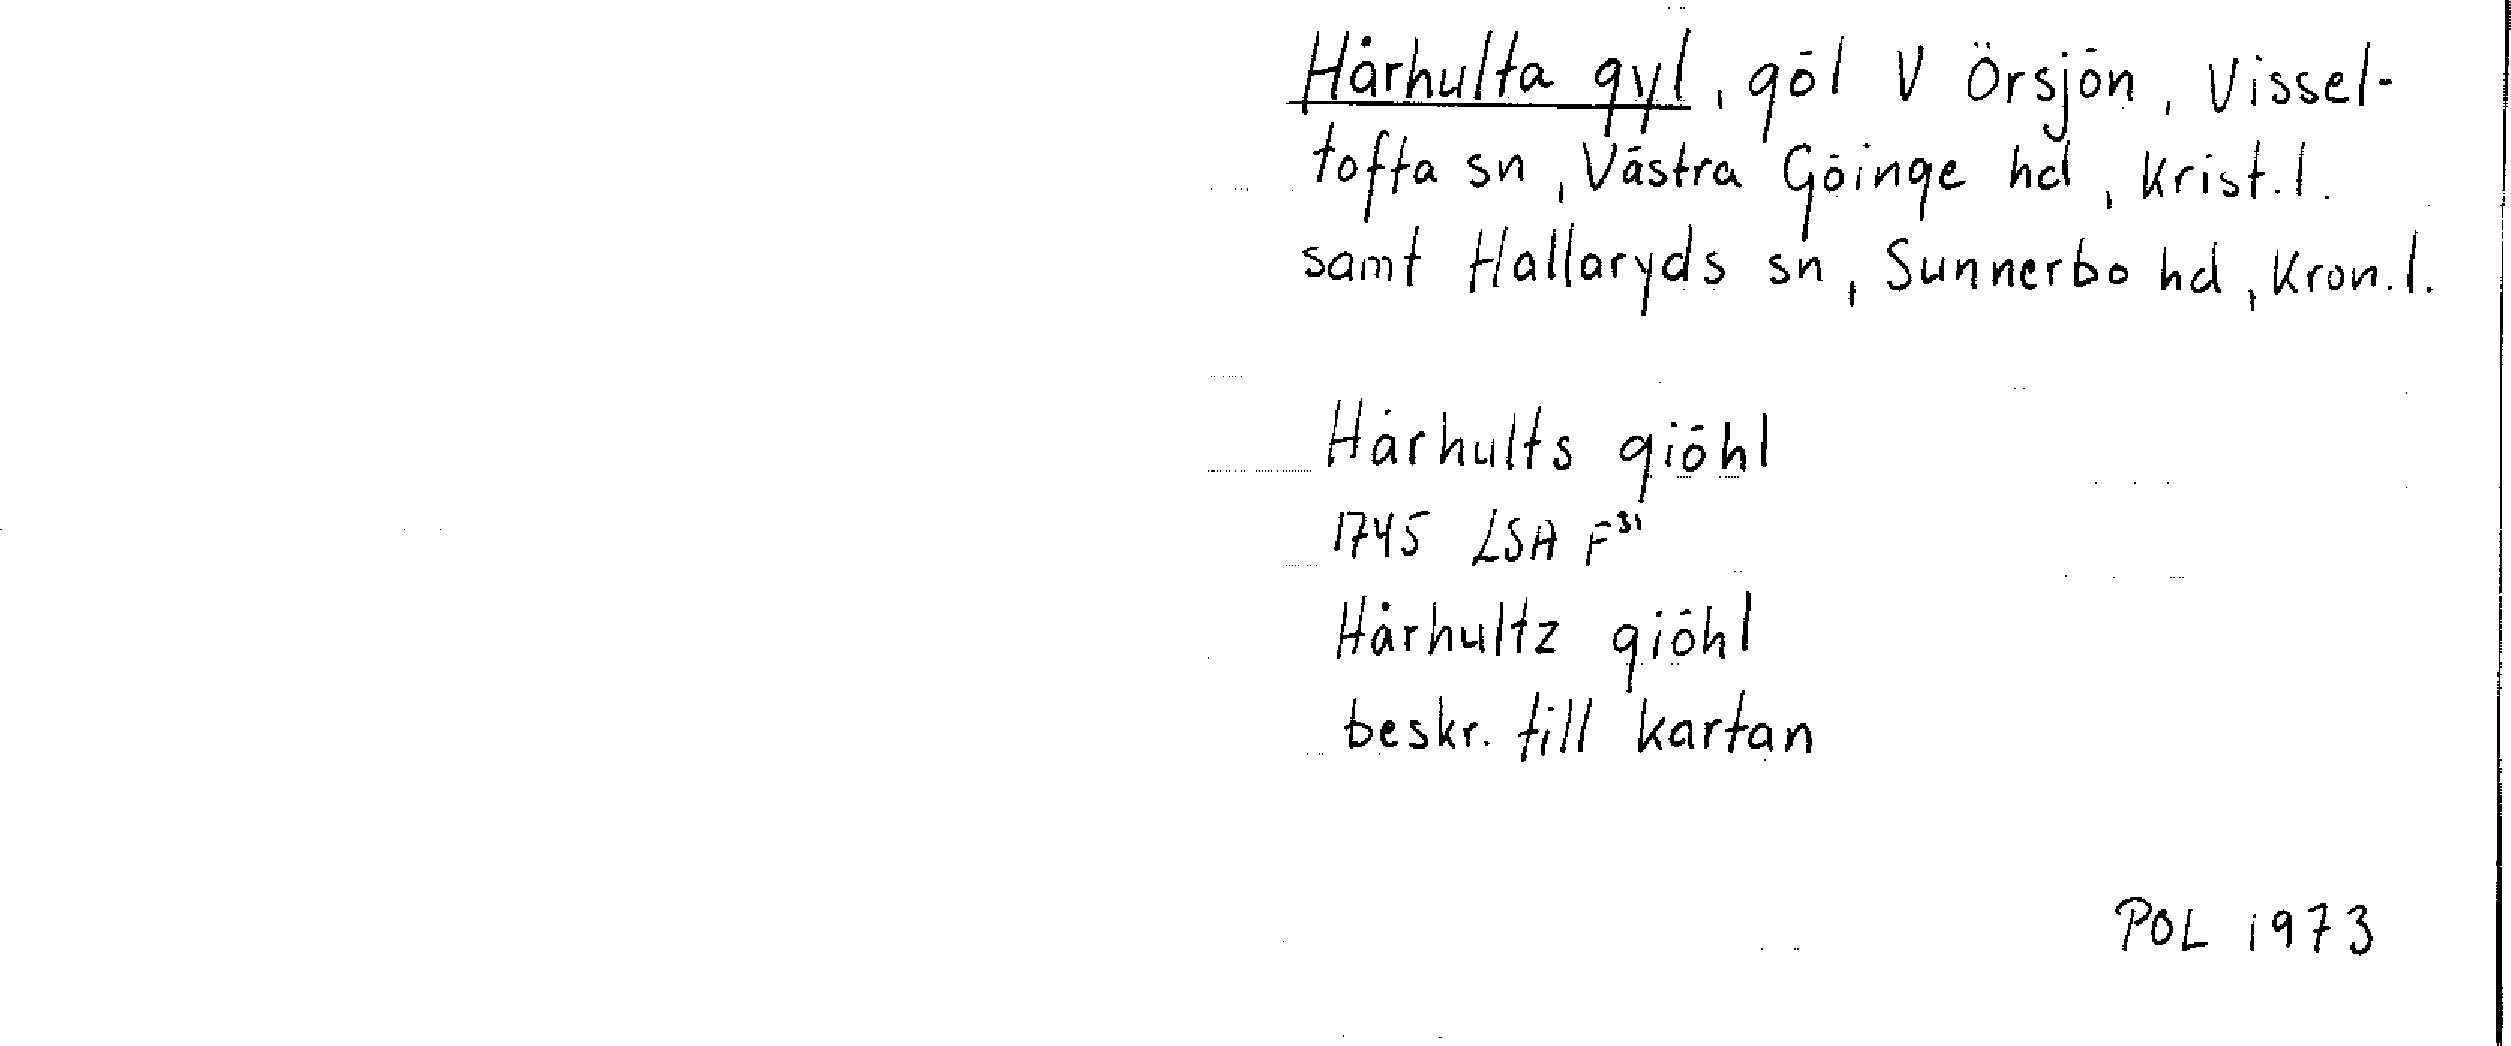 Hårhulta gyl, göl V Örsjön, Vissel-
tofta sn, Västra Göinge hd, Krist.l.
samt Hallaryds sn, Sunnerbo hd, Kron.l.
Hårhults giöhl
1745 LSA F³¹
Hårhultz giöhl
beskr. till kartan
POL 1973